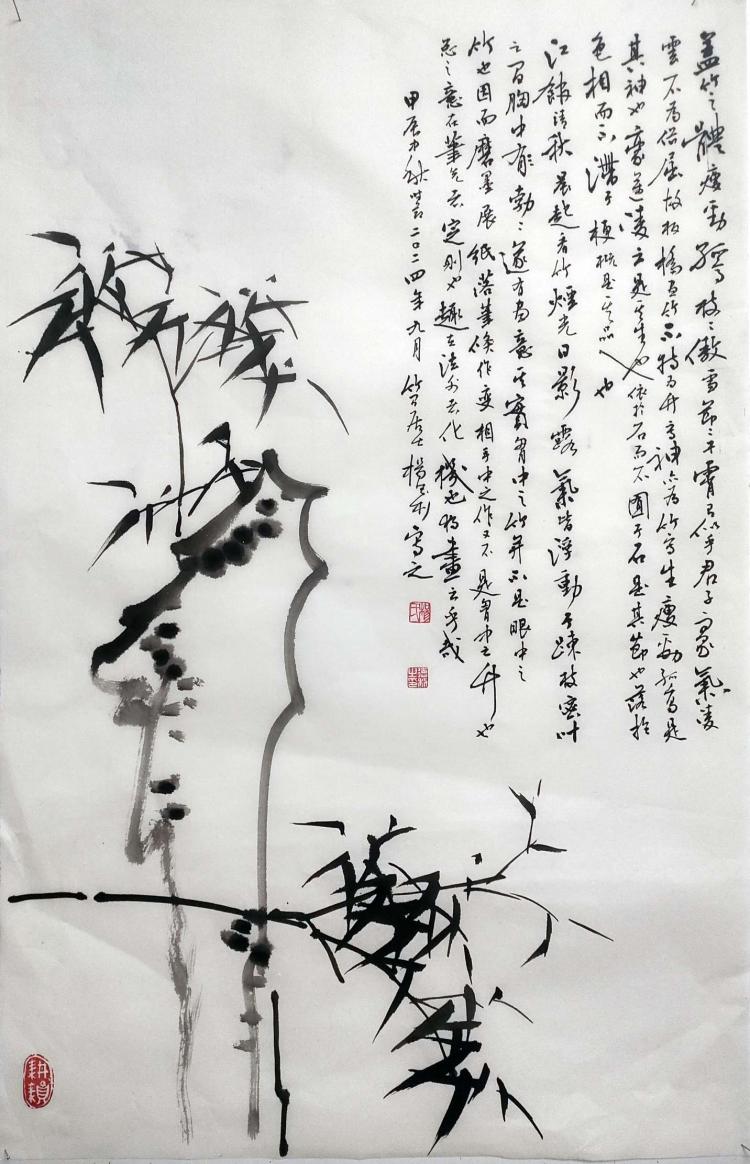 蓋竹之體瘦勁孤高枝〻傲雪節〻干霄有似乎君子豪氣凌
雲不為俗屈故板橋畫竹不特為竹寫神亦為竹寫生瘦勁孤高是
其神也豪邁凌雲是其生也依於石而不囿于石是其節也落於
色相而不滯于梗概是其品也
江館清秋晨起看竹煙光日影露氣皆浮動于疎枝密葉
之間胸中勃〻遂有畫意其實胸中之竹并不是眼中之
竹也因而磨墨展紙落筆倏作變相手中之竹又不是胸中之竹也
總之意在筆先者定則也趣在法外者化機也獨畫云乎哉
甲辰中秋 二〇二四年九月 竹 居士楊 利寫之